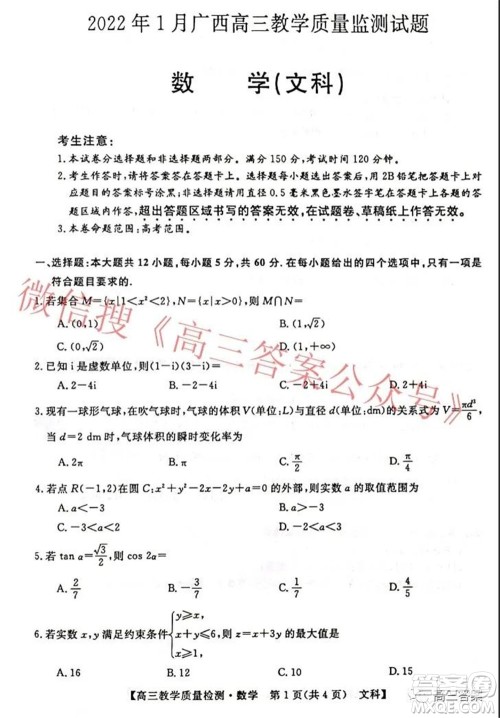 2022年1月广西高三教学质量监测试题
数 学(文科)
考生注意:
1.本试卷分选择题和非选择题两部分。满分150分,考试时间120分钟。
2.考生作答时,请将答案答在答题卡上。选择题每小题选出答案后,用2B铅笔把答题卡上对
应题目的答案标号涂黑;非选择题请用直径0.5毫米黑色墨水签字笔在答题卡上各题的答
题区域内作答,超出答题区域书写的答案无效,在试题卷、草稿纸上作答无效。
3.本卷命题范围:高考范围。
一、选择题:本大题共12小题,每小题5分,共60分.在每小题给出的四个选项中,只有一项是
符合题目要求的.
1.若集合M={x|1<x²<2},N={x|x>0},则M∩N=
A.(0,√2) B.(0,1)
C.(1,√2)
2.已知i是虚数单位,则(1-i)(3-i)=
A.2-4i B.4-2i C.-2+4i D.-4+2i
3.现有一球形气球,在吹气球时,气球的体积V(单位:L)与直径d(单位:dm)的关系式为V=πd³/6,
当d=2 dm时,气球体积的瞬时变化率为
A.2π B.π C.π/2 D.π/4
4.若点R(-1,2)在圆C:x²+y²-2x-4y+a=0的外部,则实数a的取值范围为
5.若tan α=√3/2,则cos 2α=
A.2/7 B.-3/7 C.1/7
6.若实数x,y满足约束条件{y⩾x, x+y⩽6,则3x+y的最大值为
A.16 C.12 D.15
【高三教学质量检测·数学 第1页(共4页) 文科】
微信搜《高三答案公众号》
高三答案